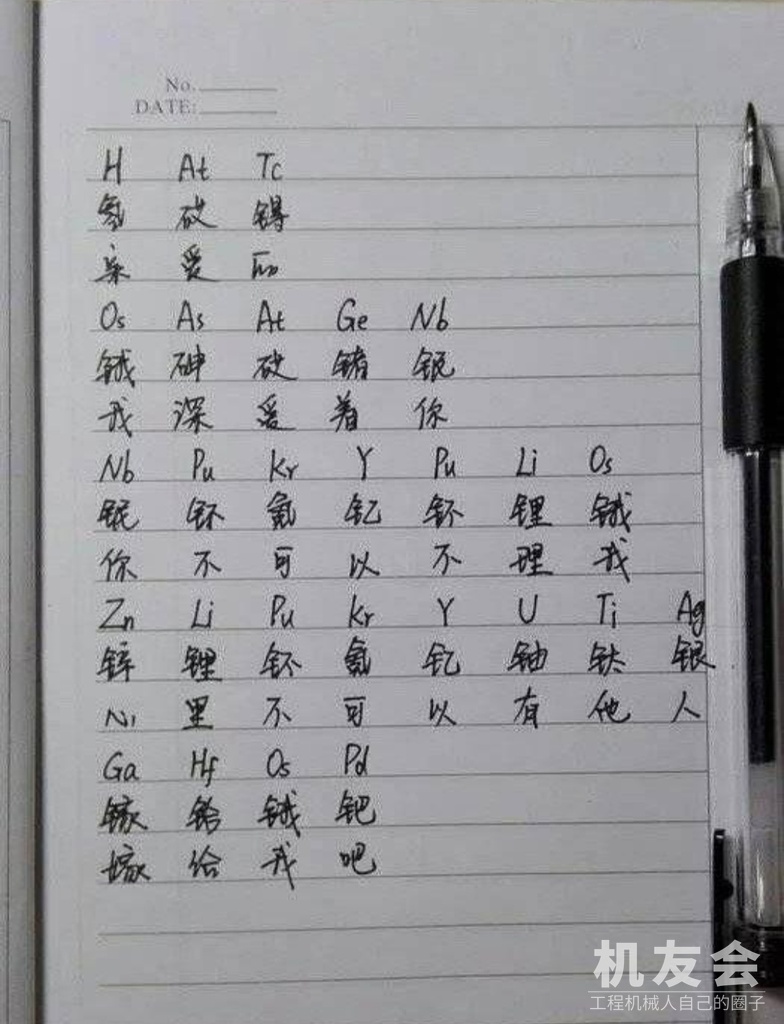 No.
DATE:
H At Tc
氢 砹 锝
亲 爱 的
Os As At Ge Nb
锇 砷 砹 锗 铌
我 深 爱 着 你
Nb Pu Kr Y Pu Li Os
铌 钚 氪 钇 钚 锂 锇
你 不 可 以 不 理 我
Zn Li Pu Kr Y U Ti Ag
锌 锂 钚 氪 钇 铀 钛 银
心 里 不 可 以 有 他 人
Ga Hf Os Pd
镓 铪 锇 钯
嫁 给 我 吧
机友会
工程机械人自己的圈子